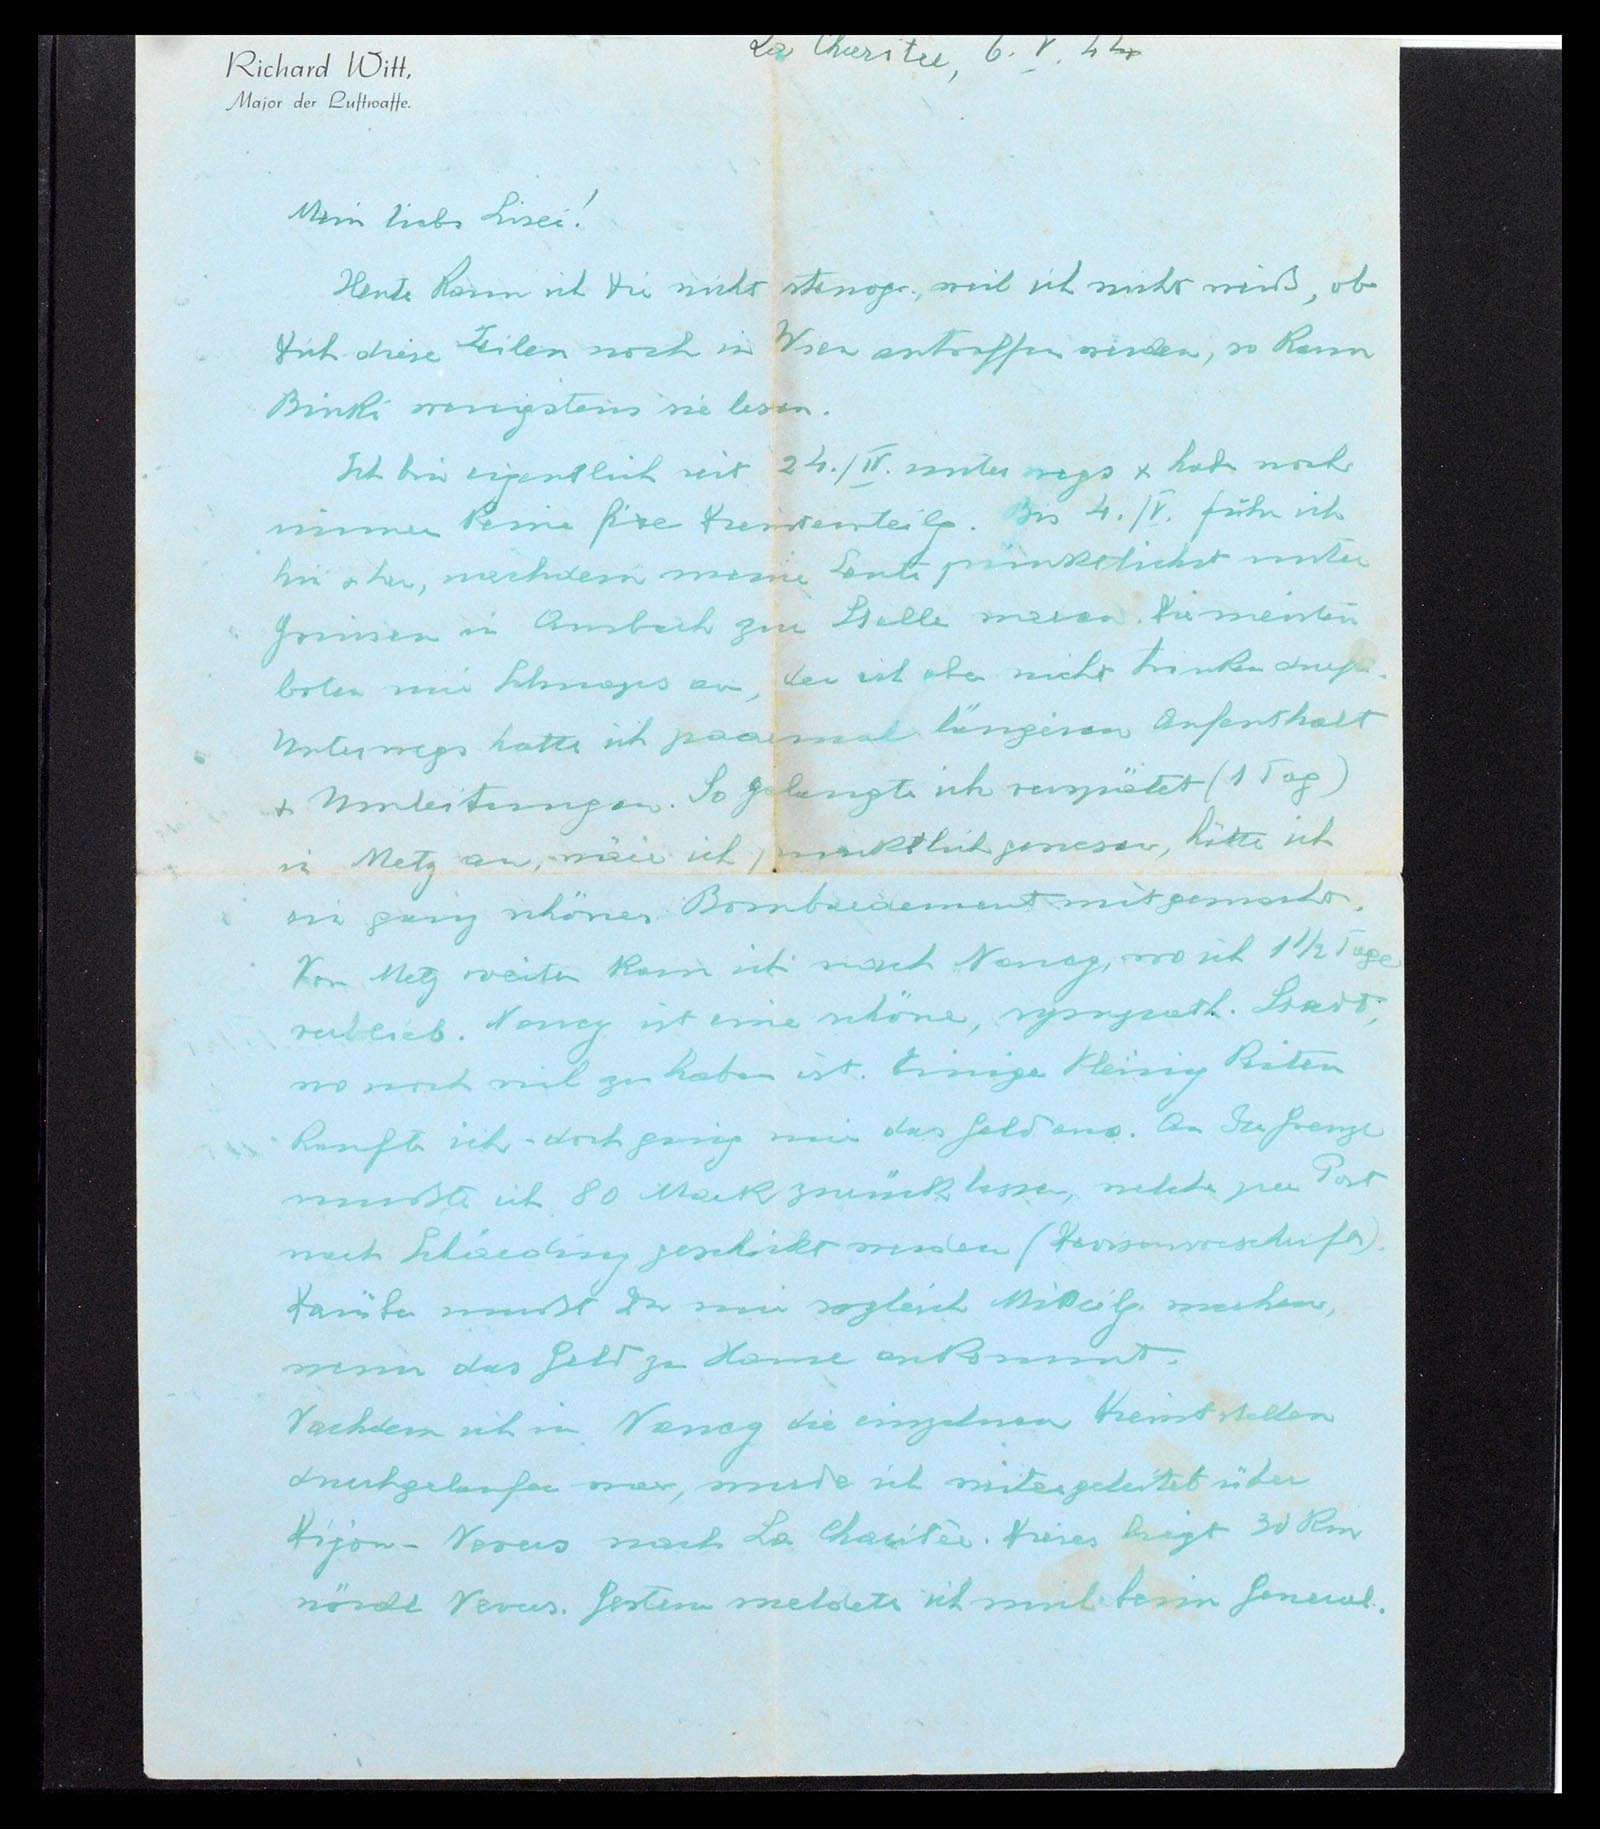 Richard Witt,
Major der Luftwaffe.
La Charitee, 6. V. 44
Mein liebs Lisei!
Heute kann ich Dir nicht stenogr., weil ich nicht weiß, ob
Dich diese Zeilen noch in Wien antreffen werden, so kann
Binki wenigstens sie lesen.
Ich bin eigentlich seit 24./IV. unterwegs & habe noch
immer keine fixe Diensteinteilg. Bis 4./V. fuhr ich
hin & her, nachdem meine Leute pünktlichst unter
Grinsen in Ansbach zur Stelle waren. Die meisten
boten mir Schnaps an, den ich aber nicht trinken durfte.
Unterwegs hatte ich paarmal längeren Aufenthalt
& Umleitungen. So gelangte ich verspätet (1 Tag)
in Metz an, wäre ich pünktlich gewesen, hätte ich
ein ganz schönes Bombardement mitgemacht.
Von Metz weiter kam ich nach Nancy, wo ich 1 1/2 Tage
verblieb. Nancy ist eine schöne, sympath. Stadt,
wo noch viel zu haben ist. Einige Kleinigkeiten
kaufte ich - doch ging mir das Geld aus. An der Grenze
mußte ich 80 Mark zurücklassen, welche per Post
nach Schärding geschickt werden (Devisenvorschrift).
Darüber mußt Du mir sogleich Mitteilg. machen,
wenn das Geld zu Hause ankommt.
Nachdem ich in Nancy die einzelnen Dienststellen
durchgelaufen war, wurde ich weitergeleitet über
Dijon - Nevers nach La Charitée. Dieses liegt 30 km
nördl Nevers. Gestern meldete ich mich beim General.